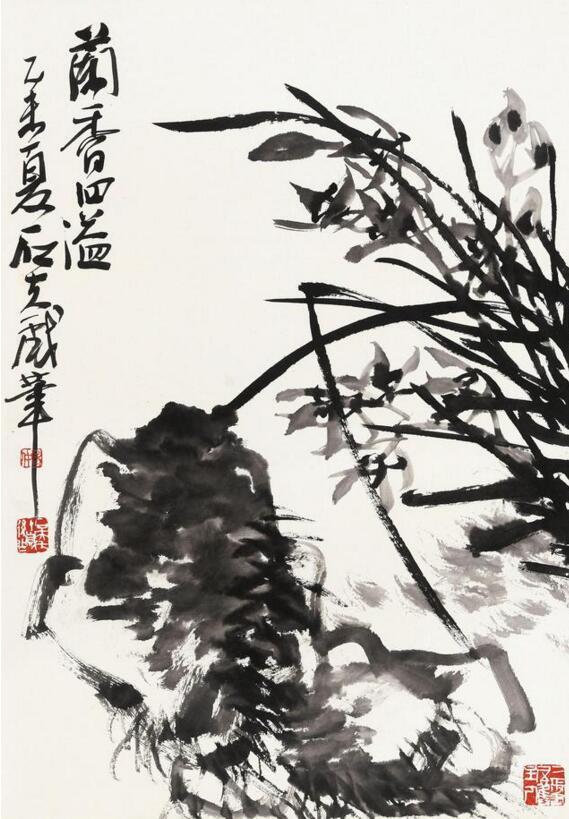 蘭香四溢
乙未夏石夫戲筆